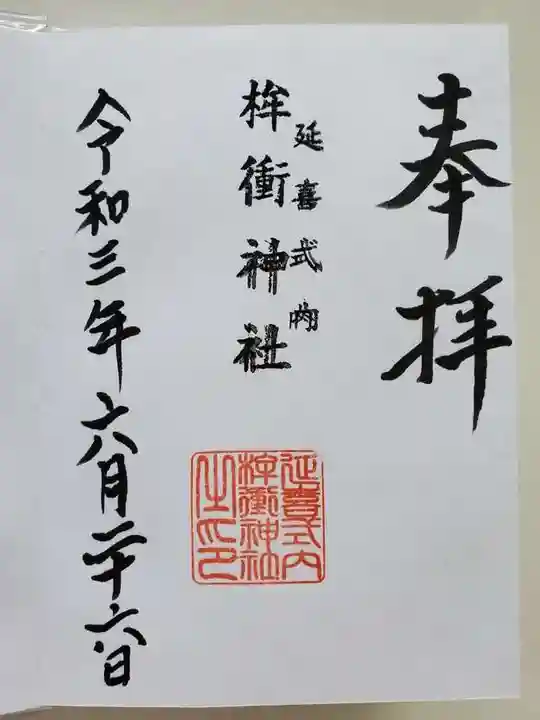 奉拝
延喜式内
桙衝神社
延喜式内
桙衝神社
之印
令和三年六月二十六日